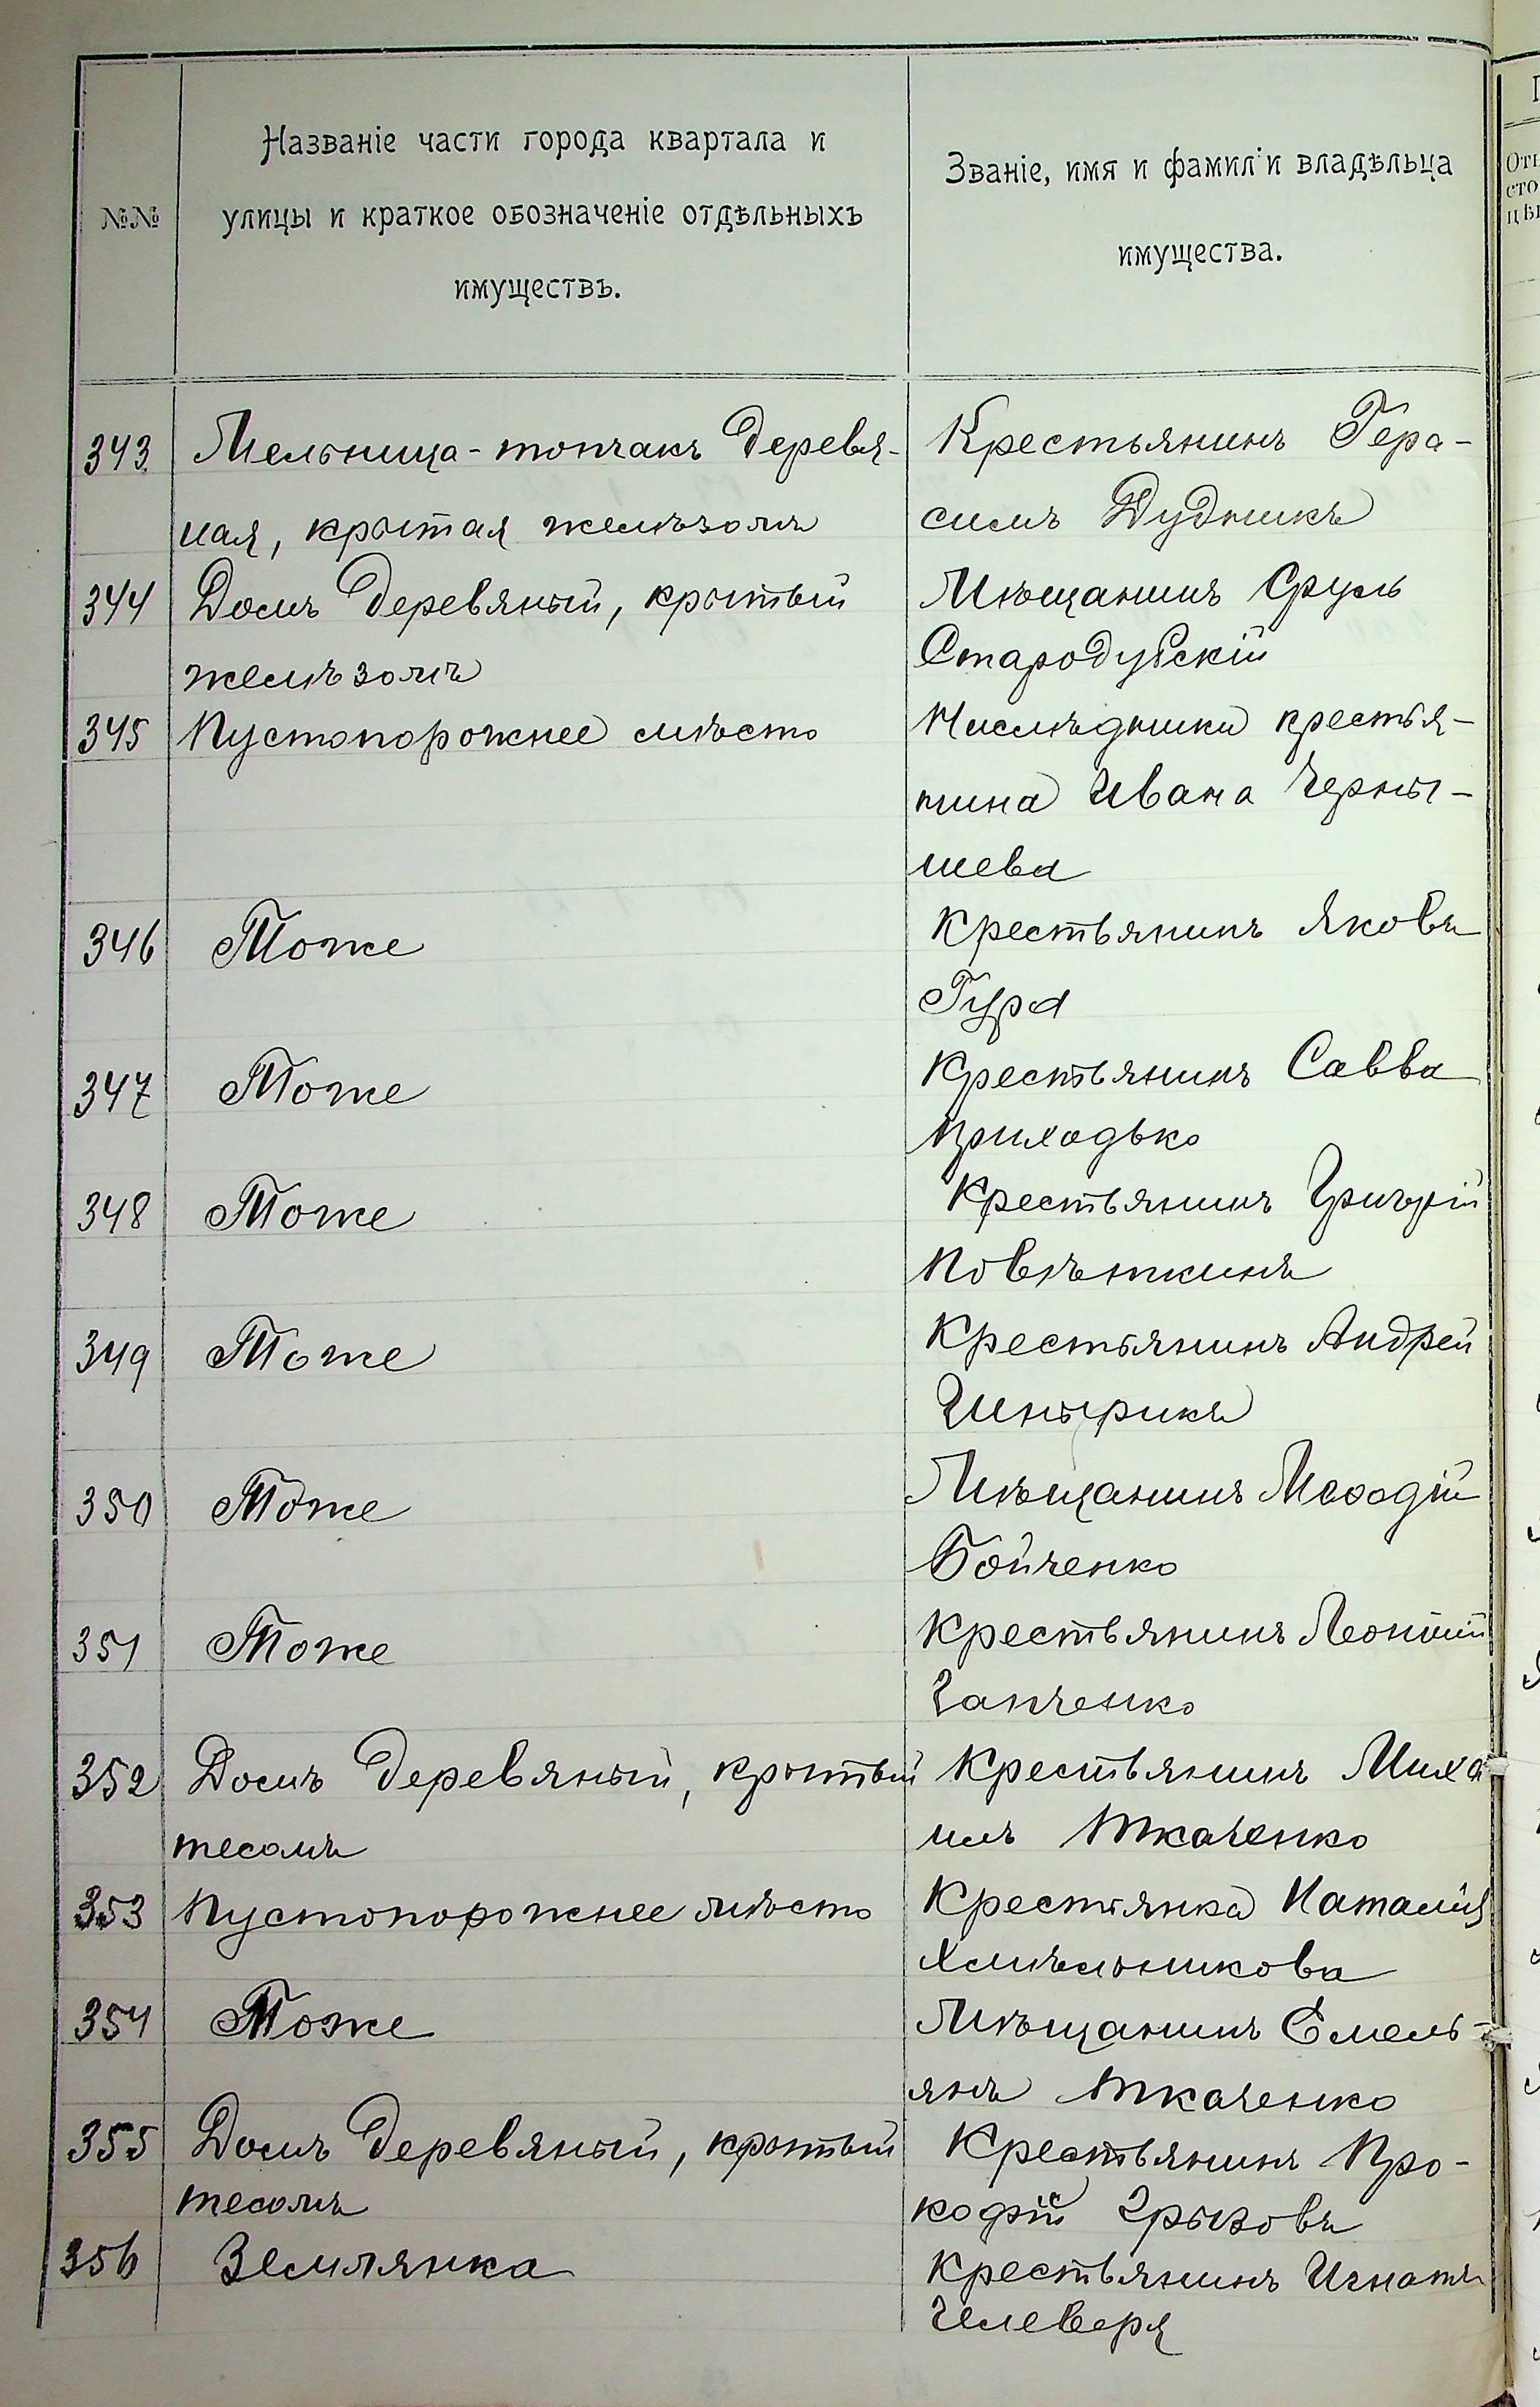 №№
Названіе части города квартала и
улицы и краткое обозначеніе отдѣльныхъ
имуществъ.
Званіе, имя и фамил и владѣльца
имущества.
343 Мельница-топчакъ деревя- Крестьянинъ Гера-
ная, крытая желѣзомъ симъ Дудникъ
344 Домъ деревяный, крытый Мѣщанинъ Сруль
желѣзомъ Стародубскій
345 Пустопорожнее мѣсто Наслѣдники крестья-
нина Ивана Черны-
шева
346 Тоже Крестьянинъ Яковъ
Гура
347 Тоже Крестьянинъ Савва
Приходько
348 Тоже Крестьянинъ Григорій
Повѣткинъ
349 Тоже Крестьянинъ Андрей
Шнырикъ
350 Тоже Мѣщанинъ Меѳодій
Бойченко
351 Тоже Крестьянинъ Леонтій
Ганченко
352 Домъ деревяный, крытый Крестьянинъ Миха
тесомъ илъ Ткаченко
353 Пустопорожнее мѣсто Крестьянка Наталія
Хмѣльникова
354 Тоже Мѣщанинъ Емель-
янъ Ткаченко
355 Домъ деревяный, крытый Крестьянинъ Про-
тесомъ кофій Грызовъ
356 Землянка Крестьянинъ Игнатъ
Шеверя